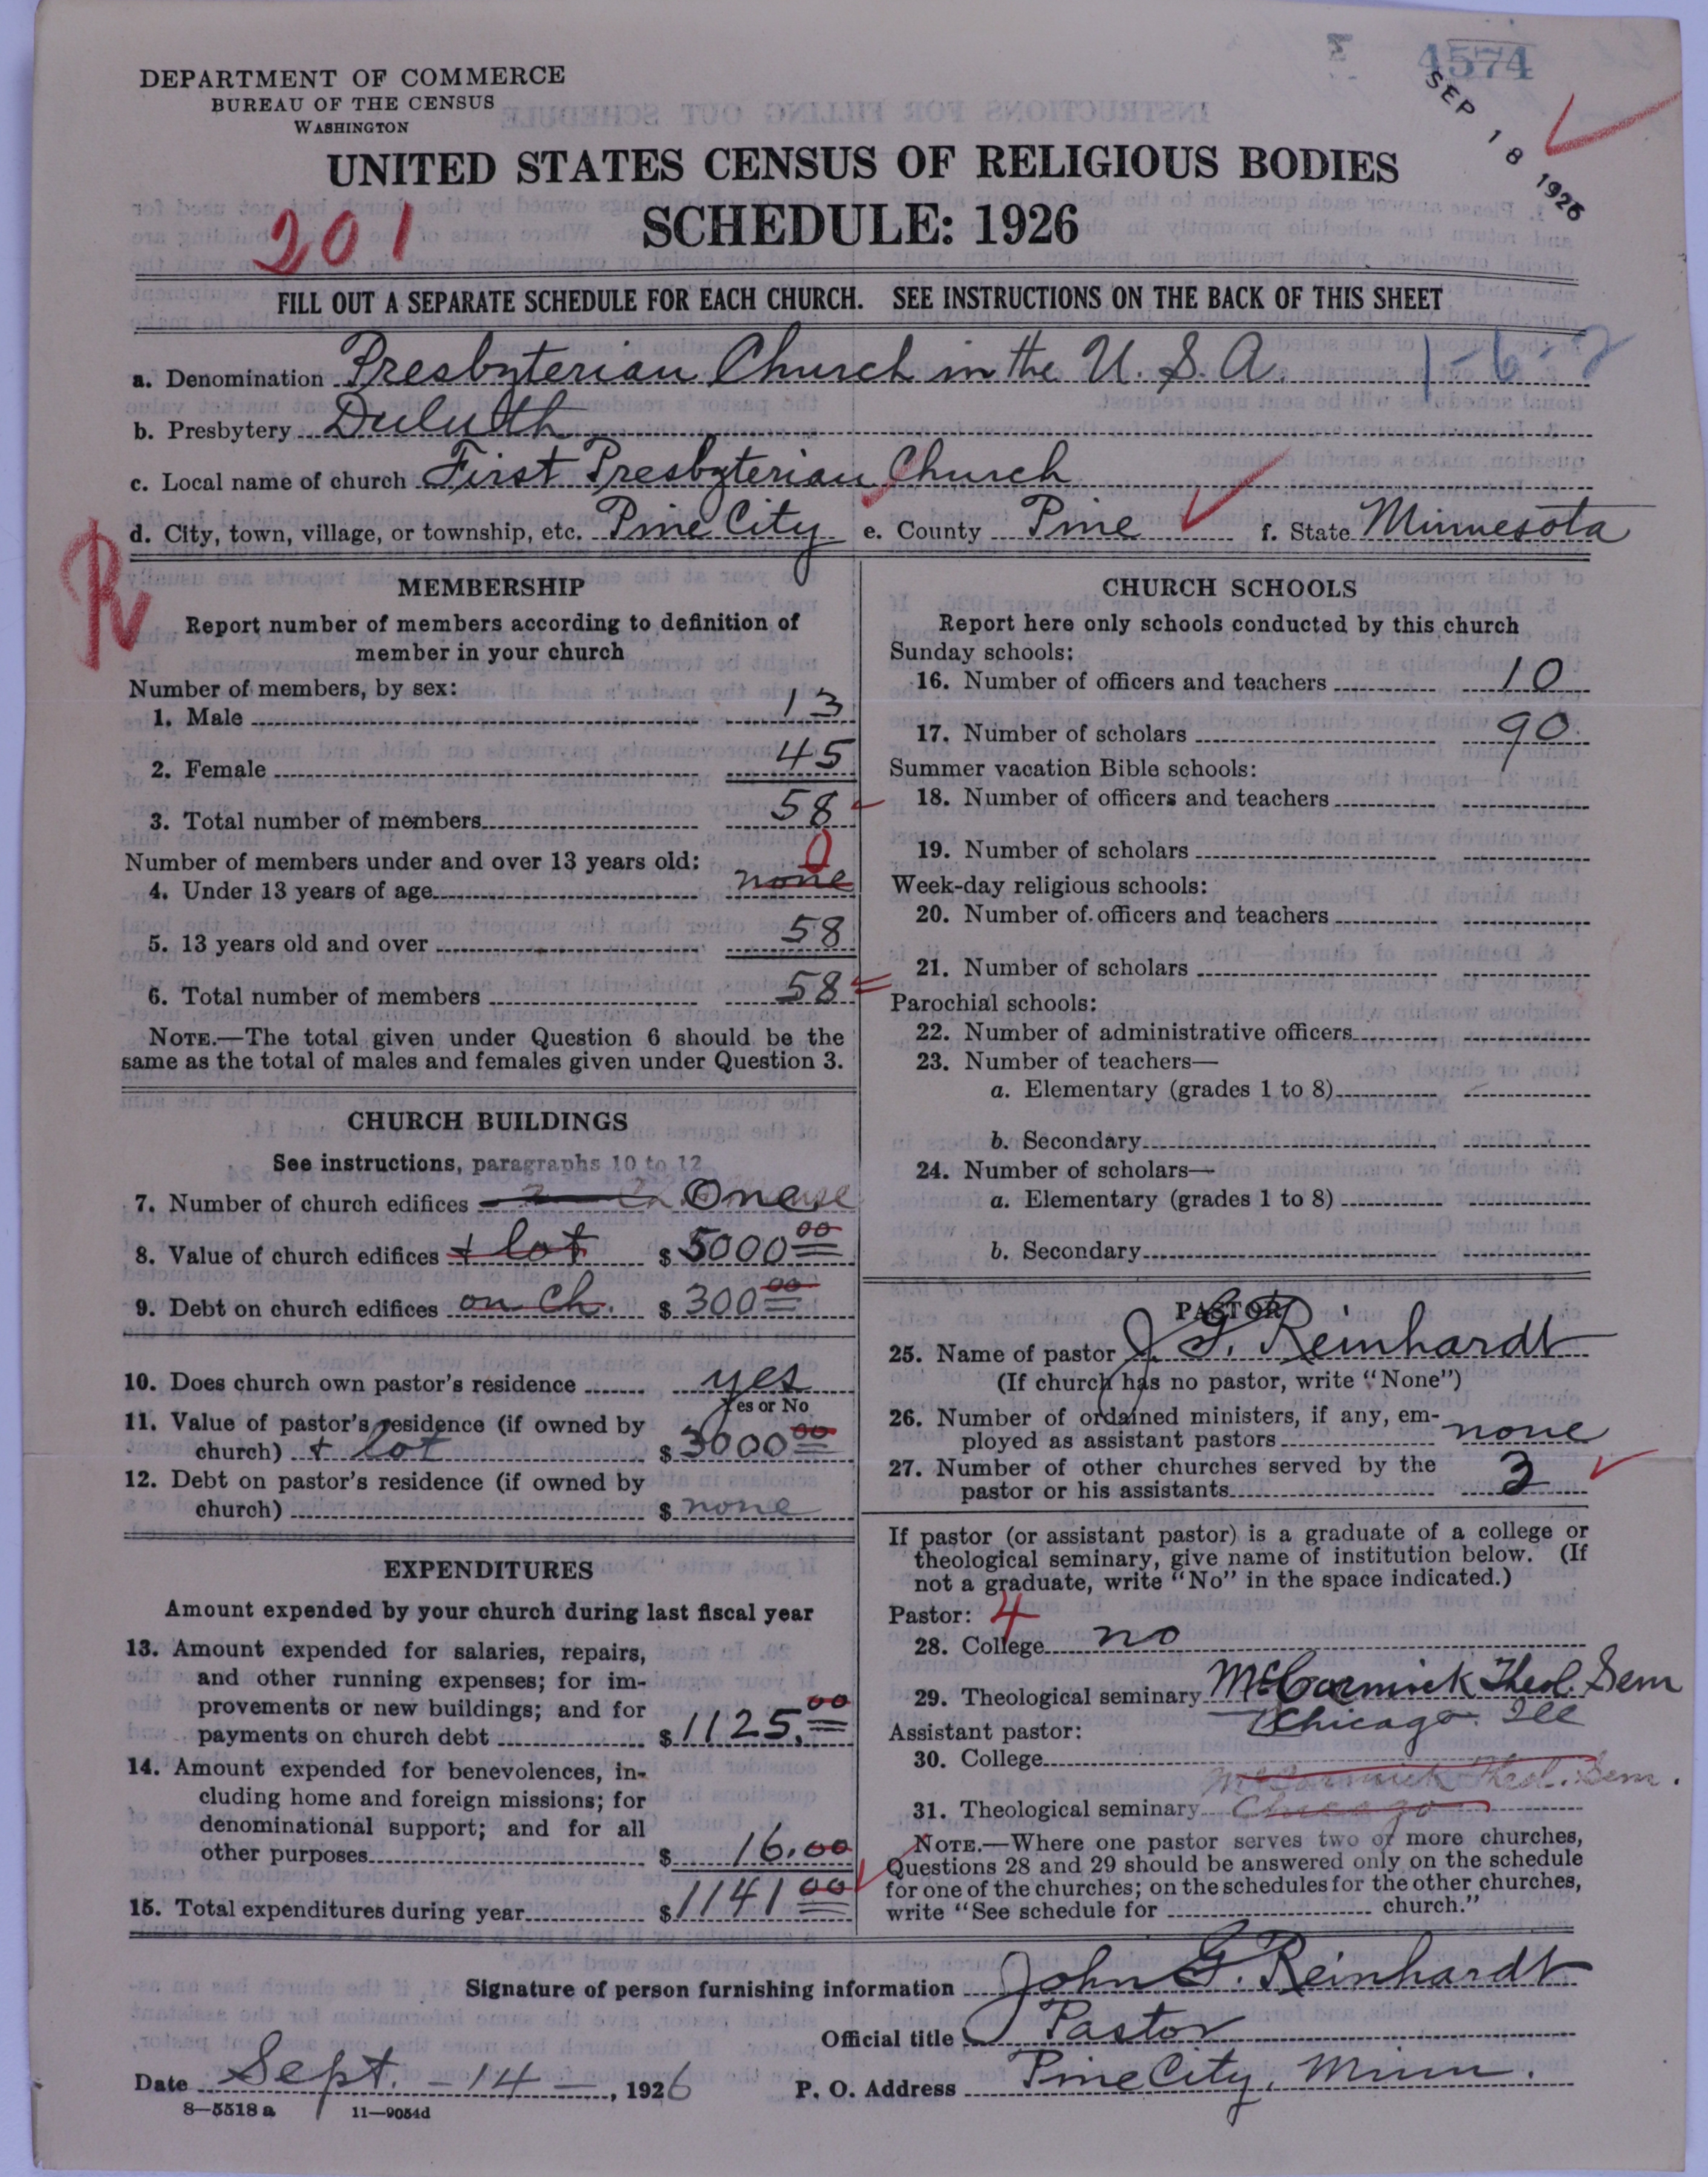 4574
SEP 18 1926
DEPARTMENT OF COMMERCE
BUREAU OF THE CENSUS
WASHINGTON
UNITED STATES CENSUS OF RELIGIOUS BODIES
SCHEDULE: 1926
201
FILL OUT A SEPARATE SCHEDULE FOR EACH CHURCH. SEE INSTRUCTIONS ON THE BACK OF THIS SHEET
a. Denomination Presbyterian Church in the U. S. A. 1-6-2
b. Presbytery Duluth
c. Local name of church First Presbyterian Church
d. City, town, village, or township, etc. Pine City e. County Pine f. State Minnesota
R
MEMBERSHIP
Report number of members according to definition of
member in your church
Number of members, by sex:
1. Male 13
2. Female 45
3. Total number of members 58
Number of members under and over 13 years old: 0
4. Under 13 years of age none
5. 13 years old and over 58
6. Total number of members 58
NOTE.—The total given under Question 6 should be the
same as the total of males and females given under Question 3.
CHURCH BUILDINGS
See instructions, paragraphs 10 to 12
7. Number of church edifices One
8. Value of church edifices + lot $ 5000 00
9. Debt on church edifices on Ch. $ 300 00
10. Does church own pastor's residence yes
Yes or No
11. Value of pastor's residence (if owned by
church) + lot $ 3000 00
12. Debt on pastor's residence (if owned by
church) $ none
EXPENDITURES
Amount expended by your church during last fiscal year
13. Amount expended for salaries, repairs,
and other running expenses; for im-
provements or new buildings; and for
payments on church debt $ 1125.00
14. Amount expended for benevolences, in-
cluding home and foreign missions; for
denominational support; and for all
other purposes $ 16.00
15. Total expenditures during year $ 1141 00
CHURCH SCHOOLS
Report here only schools conducted by this church
Sunday schools:
16. Number of officers and teachers 10
17. Number of scholars 90
Summer vacation Bible schools:
18. Number of officers and teachers
19. Number of scholars
Week-day religious schools:
20. Number of officers and teachers
21. Number of scholars
Parochial schools:
22. Number of administrative officers
23. Number of teachers—
a. Elementary (grades 1 to 8)
b. Secondary
24. Number of scholars—
a. Elementary (grades 1 to 8)
b. Secondary
PASTOR
25. Name of pastor J. G. Reinhardt
(If church has no pastor, write "None")
26. Number of ordained ministers, if any, em-
ployed as assistant pastors none
27. Number of other churches served by the
pastor or his assistants 3
If pastor (or assistant pastor) is a graduate of a college or
theological seminary, give name of institution below. (If
not a graduate, write "No" in the space indicated.)
Pastor: 4
28. College no
29. Theological seminary McCormick Theol. Sem
Chicago. Ill
Assistant pastor:
30. College
McCormick Theol. Sem.
31. Theological seminary Chicago
NOTE.—Where one pastor serves two or more churches,
Questions 28 and 29 should be answered only on the schedule
for one of the churches; on the schedules for the other churches,
write "See schedule for church."
Signature of person furnishing information John G. Reinhardt
Official title Pastor
Date Sept. - 14 -, 1926 P. O. Address Pine City, Minn.
8—5518 a 11—9054d